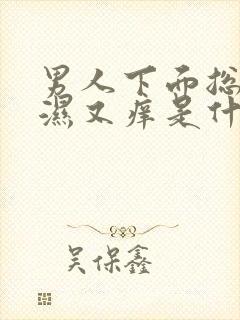 男人下面総
濕又痒是什
吴保鑫